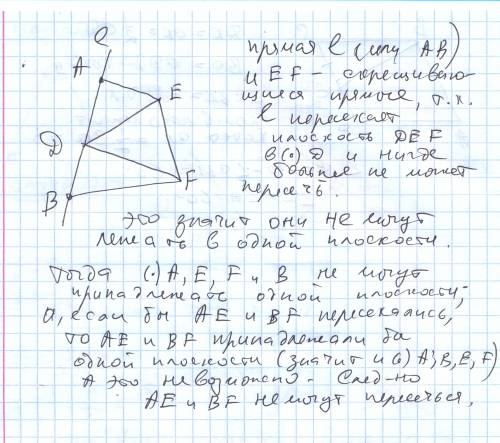 ℓ
A
E
D
F
B
прямая ℓ (или AB)
и EF - скрещиваю-
щиеся прямые, т.к.
ℓ пересекает
плоскость DEF
в (·) D и нигде
больше не может
пересечь.
это значит они не могут
лежать в одной плоскости.
Тогда (·) A, E, F и B не могут
принадлежать одной плоскости;
А, если бы AE и BF пересекались,
то AE и BF принадлежали бы
одной плоскости (значит и (·) A, B, E, F)
А это невозможно. След-но
AE и BF не могут пересечься.